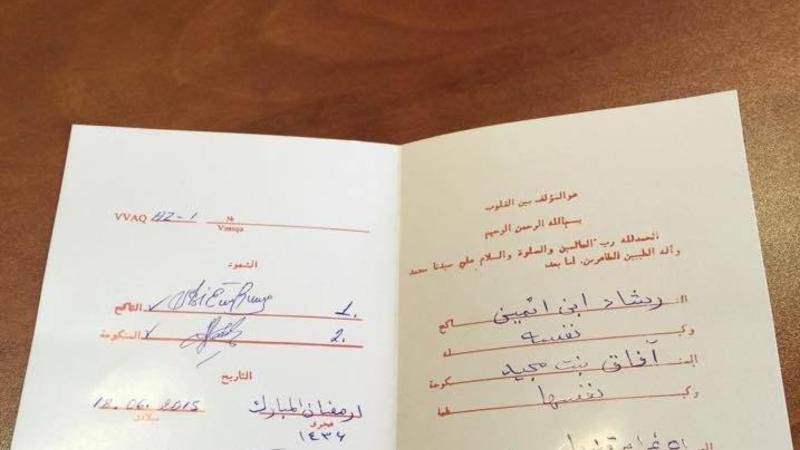 VVAQ HZ-1 نمره
Vəsiqə
الشهود
الناكح 1.
المنكوحة 2.
التاريخ
18.06.2015 لرمضان المبارك
ميلادى هجرى
١٤٣٦
هوالمؤلف بين القلوب
بسم‌الله الرحمن الرحيم
الحمدلله رب العالمين والصلوة والسلام علي سيدنا محمد
وآله الطيبين الطاهرين. اما بعد
الناكح ريشاد ابن
وكيله نفسه
المنكوحة آفاق بنت مجيد
وكيلها نفسها